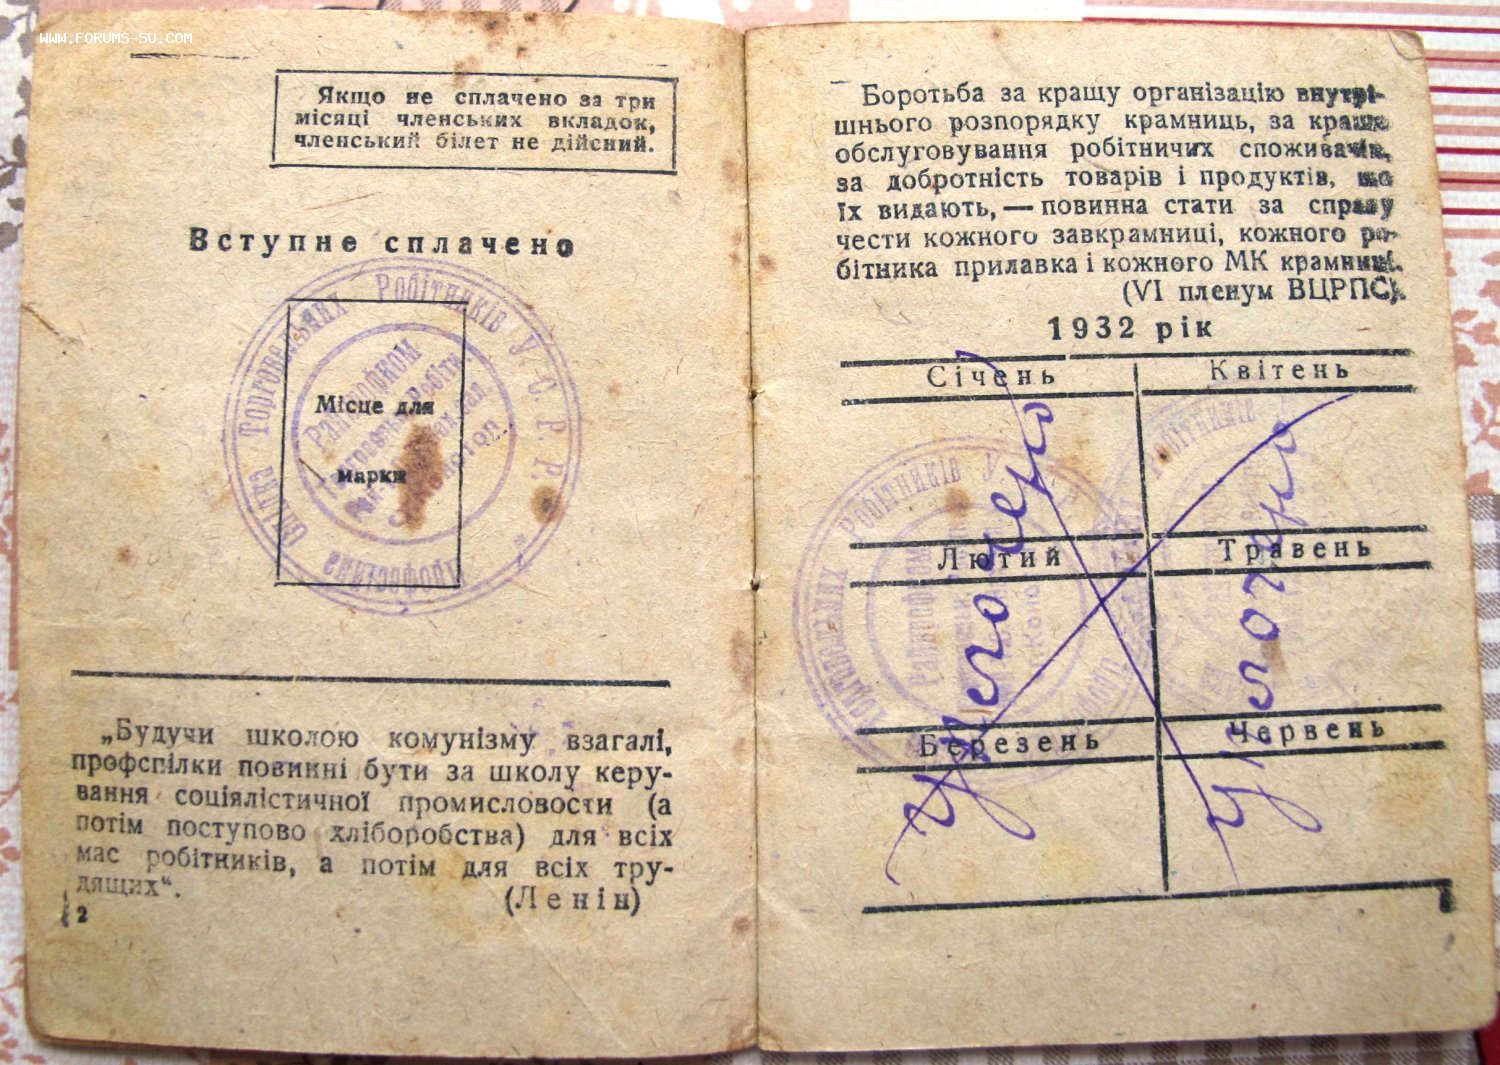 WWW.FORUMS-SU.COM
Якщо не сплачено за три
місяці членських вкладок,
членський білет не дійсний.
Вступне сплачено
Спілка Торговельних Робітників У.С.Р.Р.
Профспілка
Місце для
марки
„Будучи школою комунізму взагалі,
профспілки повинні бути за школу керу-
вання соціялістичної промисловости (а
потім поступово хліборобства) для всіх
мас робітників, а потім для всіх тру-
дящих“.
(Ленін)
2
Боротьба за кращу організацію внутрі-
шнього розпорядку крамниць, за краще
обслуговування робітничих споживачів,
за добротність товарів і продуктів, що
їх видають, — повинна стати за справу
чести кожного завкрамниці, кожного ро-
бітника прилавка і кожного МК крамниці.
(VI пленум ВЦРПС).
1932 рік
Січень
Квітень
Лютий
Травень
Березень
Червень